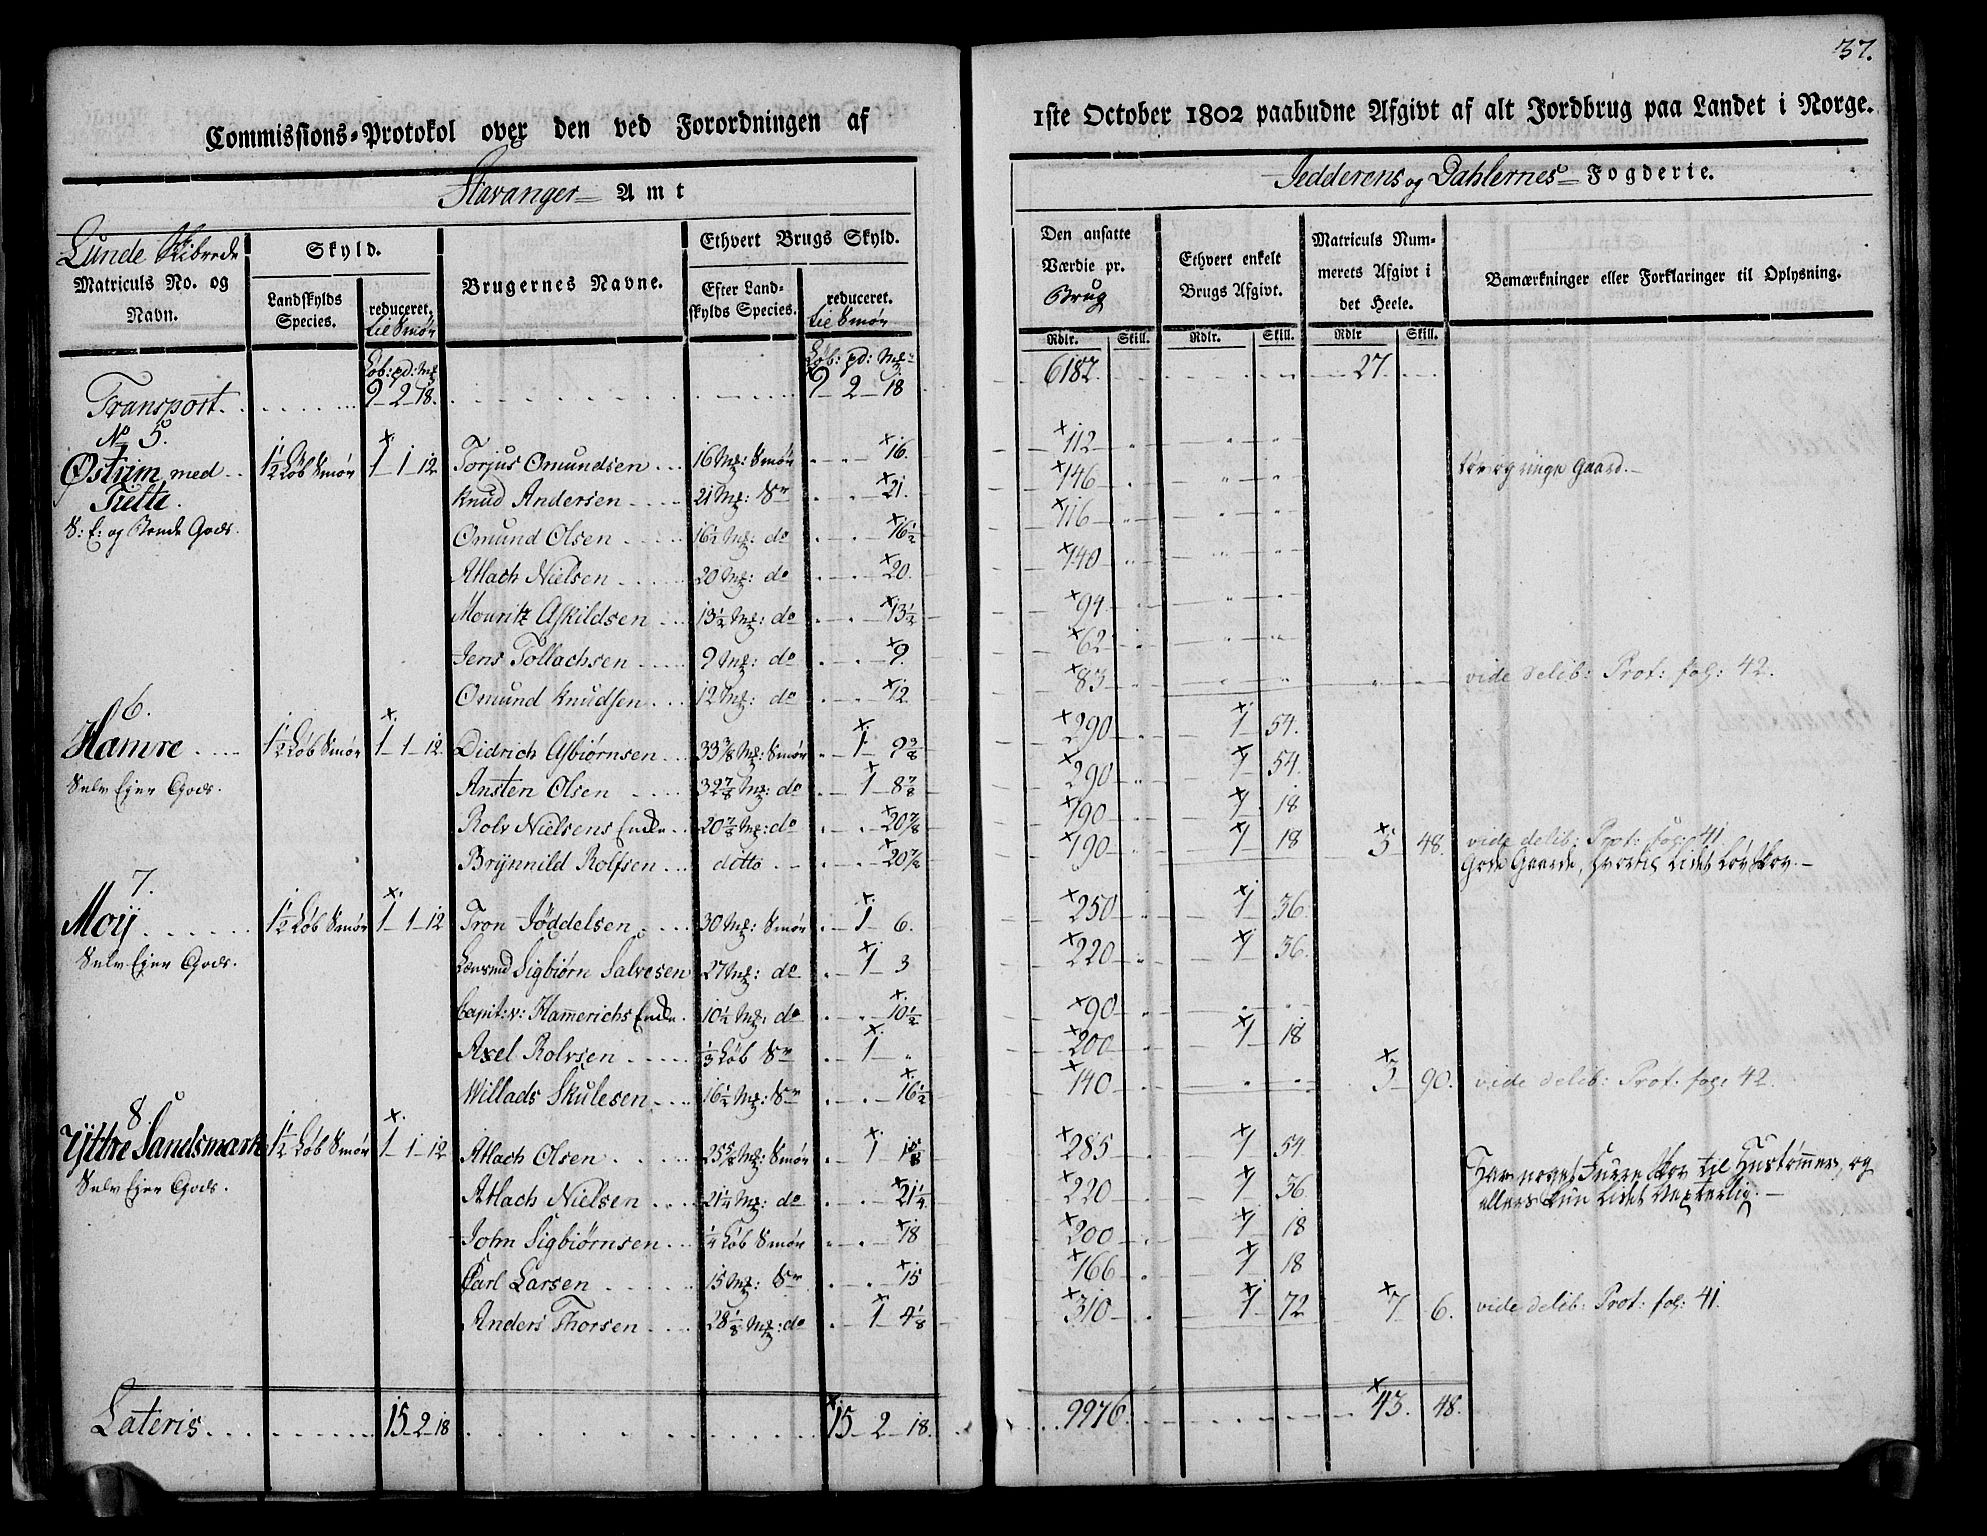 37.
Commissions-Protokol over den ved Forordningen af
1ste October 1802 paabudne Afgivt af alt Jordbrug paa Landet i Norge.
Stavanger Amt
Jedderens og Dahlernes Fogderie.
Lunde Skibrede
Matriculs No. og Navn.
Skyld.
Landskylds Species.
reduceret. til Smør
Brugernes Navne.
Ethvert Brugs Skyld.
Efter Landskylds Species.
reduceret. til Smør
Den ansatte Værdie pr. Brug
Ethvert enkelt Brugs Afgivt.
Matriculs Nummerets Afgivt i det Heele.
Bemærkninger eller Forklaringer til Oplysning.
Rdlr. Skill. Rdlr. Skill. Rdlr Skill.
Løb: pd: Mk Løb: pd: Mk
Transport. 9 - 2 - 18. 9 - 2 - 18 6182. 27
No 5.
Østrim med 1½ Løb Smør 1 - 1 - 12 Torjus Omundsen 16 Mk: Smør 16. 112
Tielte. Knud Andersen 21 Mk: Sr 21. 146 tør og ringe Gaard.
S: E: og Bonde Gods. Omund Olsen 16½ Mk: do 16½ 116
Atlach Nielsen 20 Mk: do 20. 140
Mouritz Askildsen 13½ Mk: do 13½ 94
Jens Tollachsen 9 Mk: do 9. 62
Osmund Knudsen 12 Mk: do 12 83 vide delib: Prot: fol: 42.
6.
Hamre 1½ Løb Smør 1 - 1 - 12 Didrich Asbiørnsen 33⅜ Mk: Smør 1 - 9⅜ 290 1 54.
Selv Ejer Gods. Ansten Olsen 32⅞ Mk: do 1 - 8⅞ 290 1 54.
Rolv Nielsens Enke 20⅞ Mk: do 20⅞ 190 1 18
Brynnild Rolfsen ditto 20⅞ 190 1 18 5 48. vide delib: Prot: fol: 41
Gode Gaarde, hvortil Lidet Løvskov.
7.
Moij 1½ Løb Smør 1 - 1 - 12 Tron Jøddelsen 30 Mk: Smør 1 - 6. 250 1 36.
Selv Ejer Gods. Lænsmd Sigbiørn Salvesen 27 Mk: do 1 - 3 220 1 36.
Capit: v: Hamerichs Enke 10½ Mk: do 10½ 90
Axel Rolvsen ⅓ Løb Sr 1 200 1 18
Willads Skulesen 16½ Mk: Sr 16½ 140 3 90. vide delib: Prot: fol: 42
8.
Yttre Sandsmark 1½ Løb Smør 1 - 1 - 12 Atlach Olsen 25⅝ Mk: Smør 1 1⅝ 285 1 54. Har noget Furre skov til Hustømmer, og
Selv Ejer Gods. Atlach Nielsen 21¼ Mk: do 21¼ 220 1 36 ellers kun Lidet Vexterlig.
John Sigbiørnsen ¼ Løb Smør 18 200 1 18
Carl Larsen 15 Mk: Sr 15 166 1 18
Anders Thorsen 28⅛ Mk: do 1 - 4⅛ 310 1 72 7 6. vide delib: Prot: fol: 41.
Lateris 15 - 2 - 18 15 - 2 - 18. 9976 43. 48.